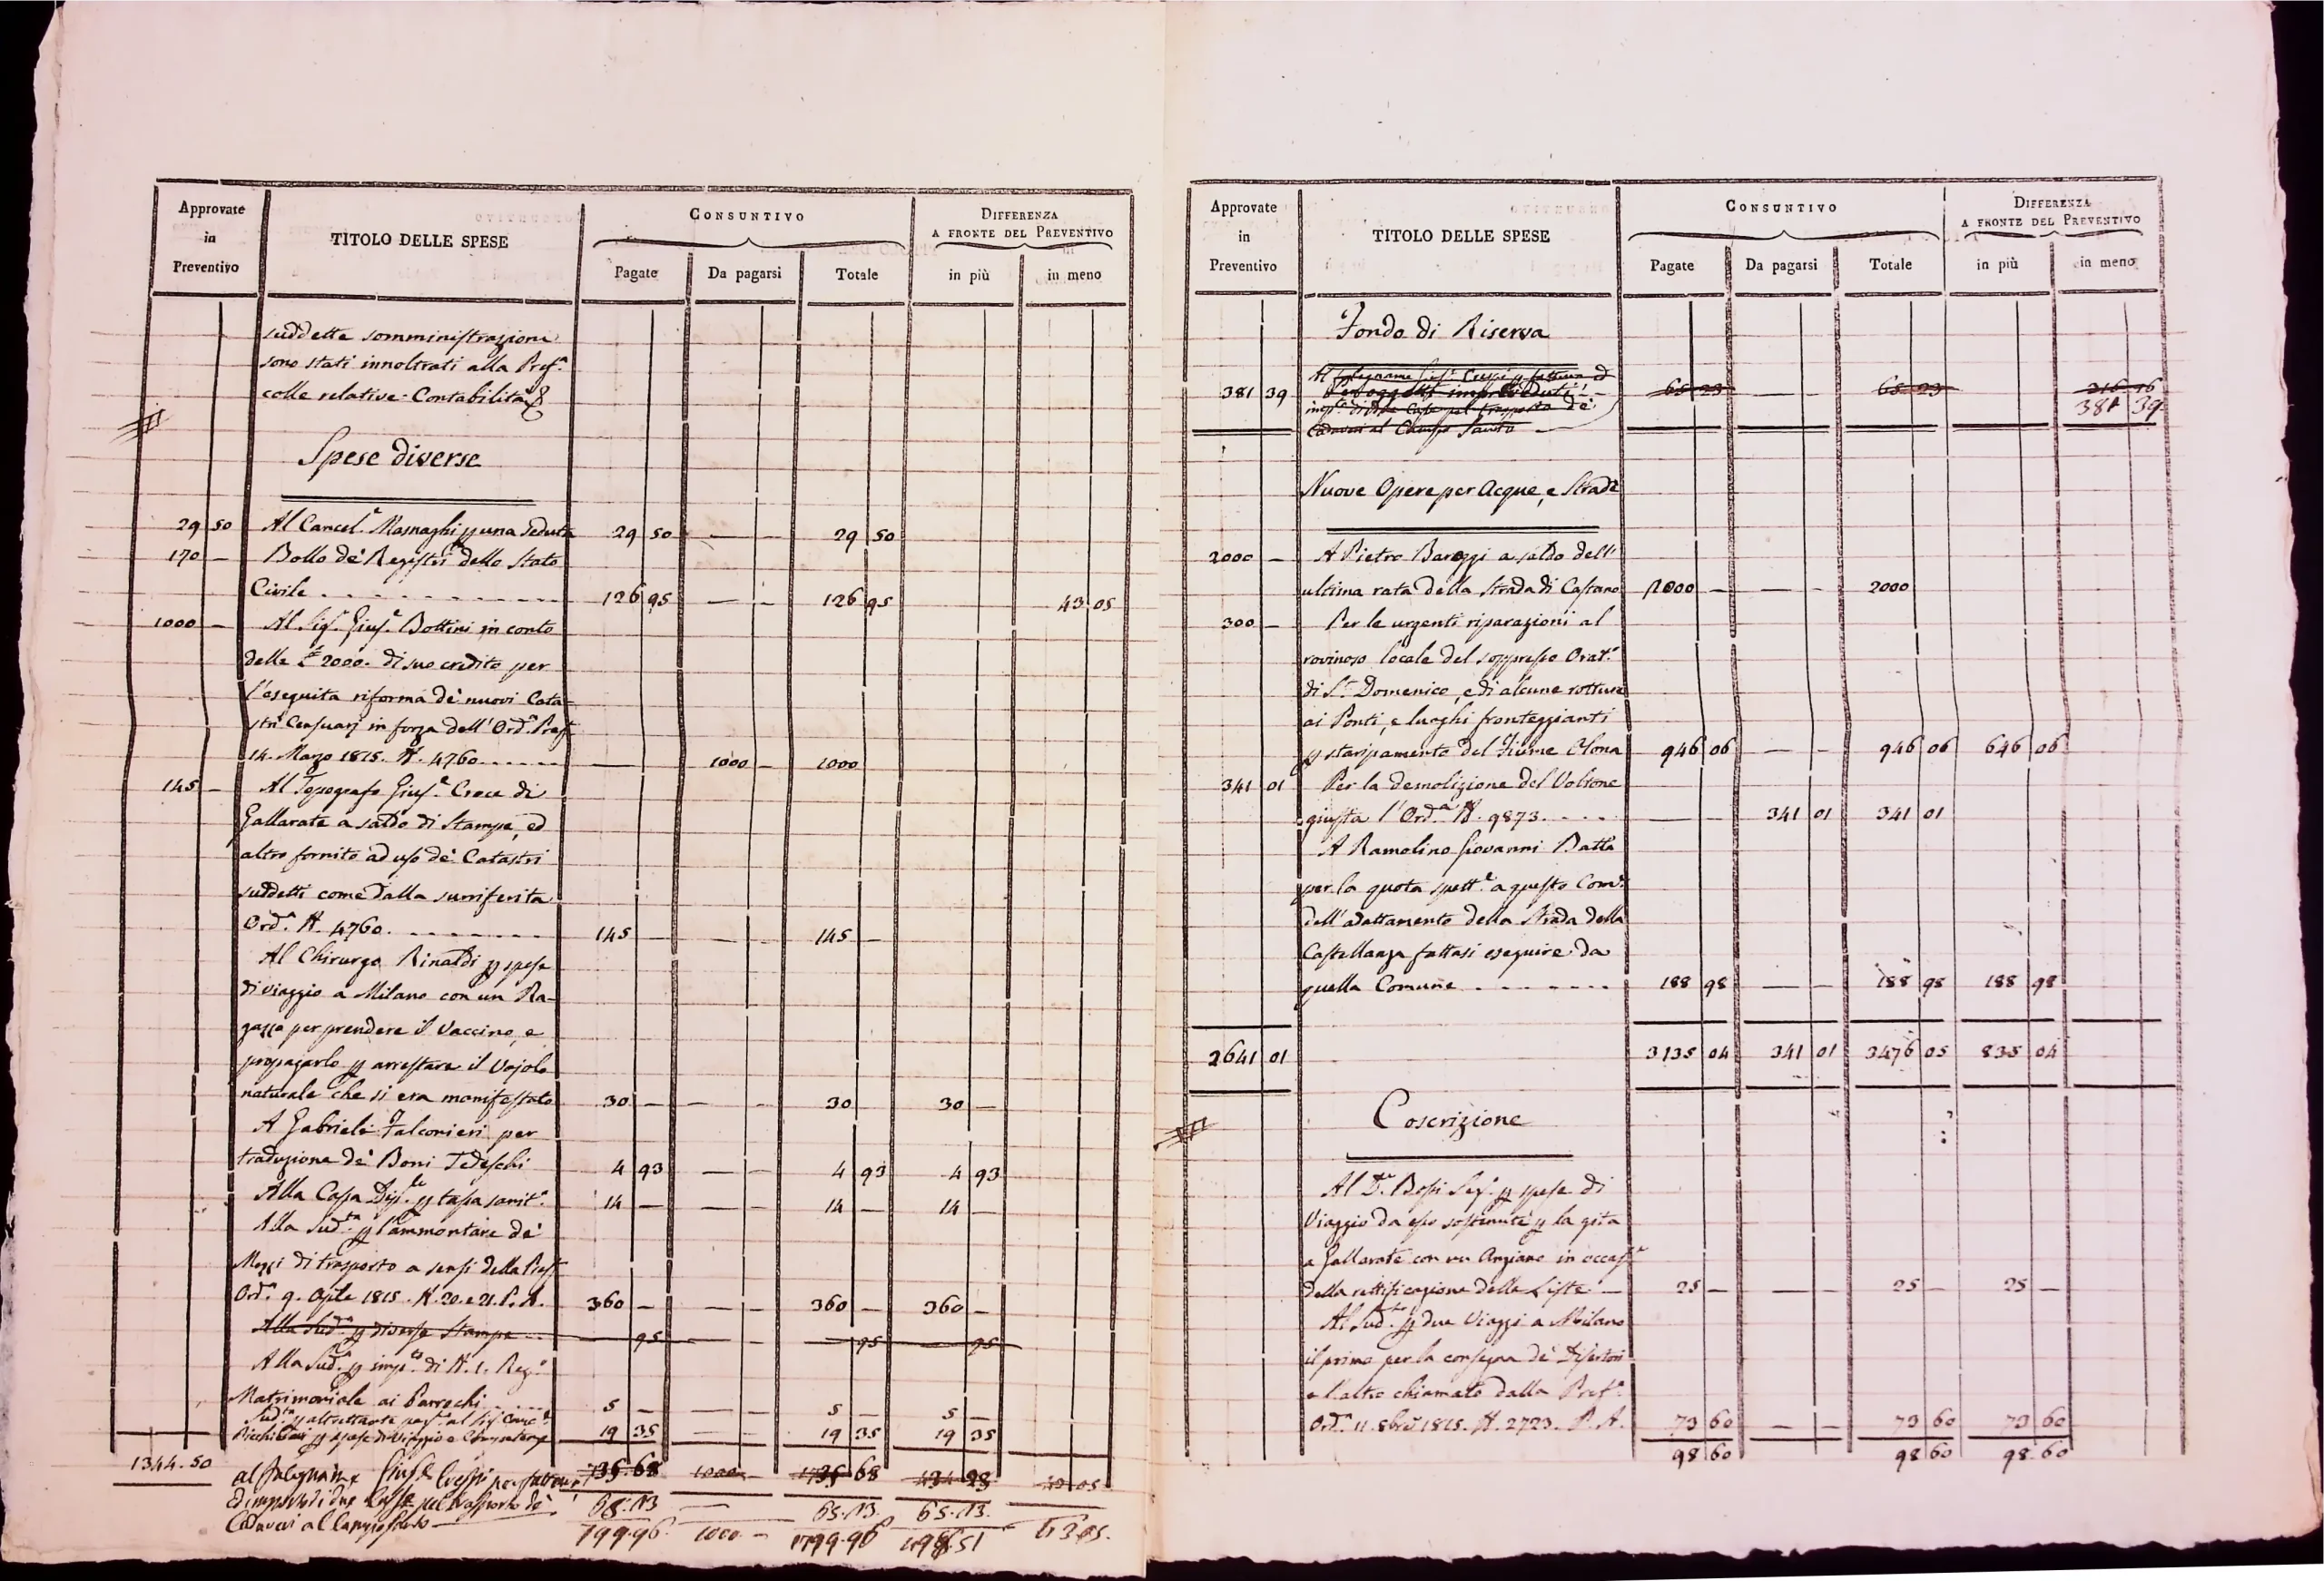 Approvate in Preventivo
TITOLO DELLE SPESE
CONSUNTIVO
DIFFERENZA A FRONTE DEL PREVENTIVO
Pagate Da pagarsi Totale in più in meno
suddette somministrazioni
sono stati innoltrati alla Pref.a
colle relative Contabilità
Spese diverse
29 50 Al Cancel.e Masnaghi p una Seduta 29 50 — — 29 50
170 — Bollo de' Registri dello Stato
Civile 126 95 — — 126 95 43 05
1000 — Al Sig.r Gius.e Bottini in conto
delle £ 2000. di suo credito per
l'eseguita riforma de' nuovi Cata-
stri Censuarj in forza dell'Ord.a Pref.
14. Marzo 1815. N. 4760 — 1000 — 1000
145 — Al Tipografo Gius.e Croce di
Gallarate a saldo di Stampe, ed
altro fornito ad uso de' Catastri
suddetti come dalla surriferita
Ord.a N. 4760. 145 — — — 145 —
Al Chirurgo Rinaldi p spese
di viaggio a Milano con un Ra-
gazzo per prendere il Vaccino, e
propagarlo p arrestare il Vajolo
naturale che si era manifestato 30 — — — 30 30 —
A Gabriele Falconieri per
traduzione de' Boni Tedeschi 4 93 — — 4 93 4 93
Alla Casa p tassa sanit.a 14 — — — 14 — 14 —
Alla Sud.ta p l'ammontare de'
Mezzi di trasporto a sensi della Pref.
Ord.a 9. Aple 1815. N. 20. e 21. P. R. 360 — — — 360 — 360 —
Alla Sud.a p diverse Stampe — 95 — — — 95 — 95
Alla Sud.a p imp.to di N. 1. Reg.o
Matrimoniale ai Parrochi 5 — — — 5 — 5 —
Sud.ta p altrettante pag.e al Sig.
p spese di viaggio e 19 35 — — 19 35 19 35
1344.50 735.68 1000 1735 68 434 28 43 05
al falegname Gius.e Crespi per fattura
ed importo di due Casse pel trasporto de'
Cadaveri al Campo Santo 65.13 — 65.13 65.13
799.96 1000 — 1799.96 498.51 43.05.
Approvate in Preventivo
TITOLO DELLE SPESE
CONSUNTIVO
DIFFERENZA A FRONTE DEL PREVENTIVO
Pagate Da pagarsi Totale in più in meno
Fondo di Riserva
Al falegname Gius.e Crespi p fattura ed
381 39 Per oggetti impreveduti 65 23 — — 65 23 316 16
imp.to di due Casse pel trasporto de' 381 39
Cadaveri al Campo Santo
Nuove Opere per Acque, e Strade
2000 — A Pietro Baroggi a saldo dell'
ultima rata della Strada di Castano 2000 — — — 2000
300 — Per le urgenti riparazioni al
rovinoso locale del soppresso Orat.o
di S.n Domenico, e di alcune rotture
ai Ponti, e luoghi fronteggianti
p straripamento del Fiume Olona 946 06 — — 946 06 646 06
341 01 Per la demolizione del Voltone
giusta l'Ord.a N. 9873. — — 341 01 341 01
A Ramolino Giovanni Batta
per la quota spett.e a questo Com.e
dell'adattamento della Strada della
Castellanza fattasi eseguire da
quella Comune 188 98 — — 188 98 188 98
2641 01 3135 04 341 01 3476 05 835 04
Coscrizione
Al D.r Bossi p spese di
Viaggio da esso sostenute p la gita
a Gallarate con un Anziano in occas.e
della rettificazione delle Liste — 25 — — — 25 — 25 —
Al Sud.to p due Viaggi a Milano
il primo per la consegna de' Disertori
e l'altro chiamato dalla Pref.a
Ord.a 11. 8bre 1815. N. 2723. P. R. 73 60 — — 73 60 73 60
98 60 98 60 98 60